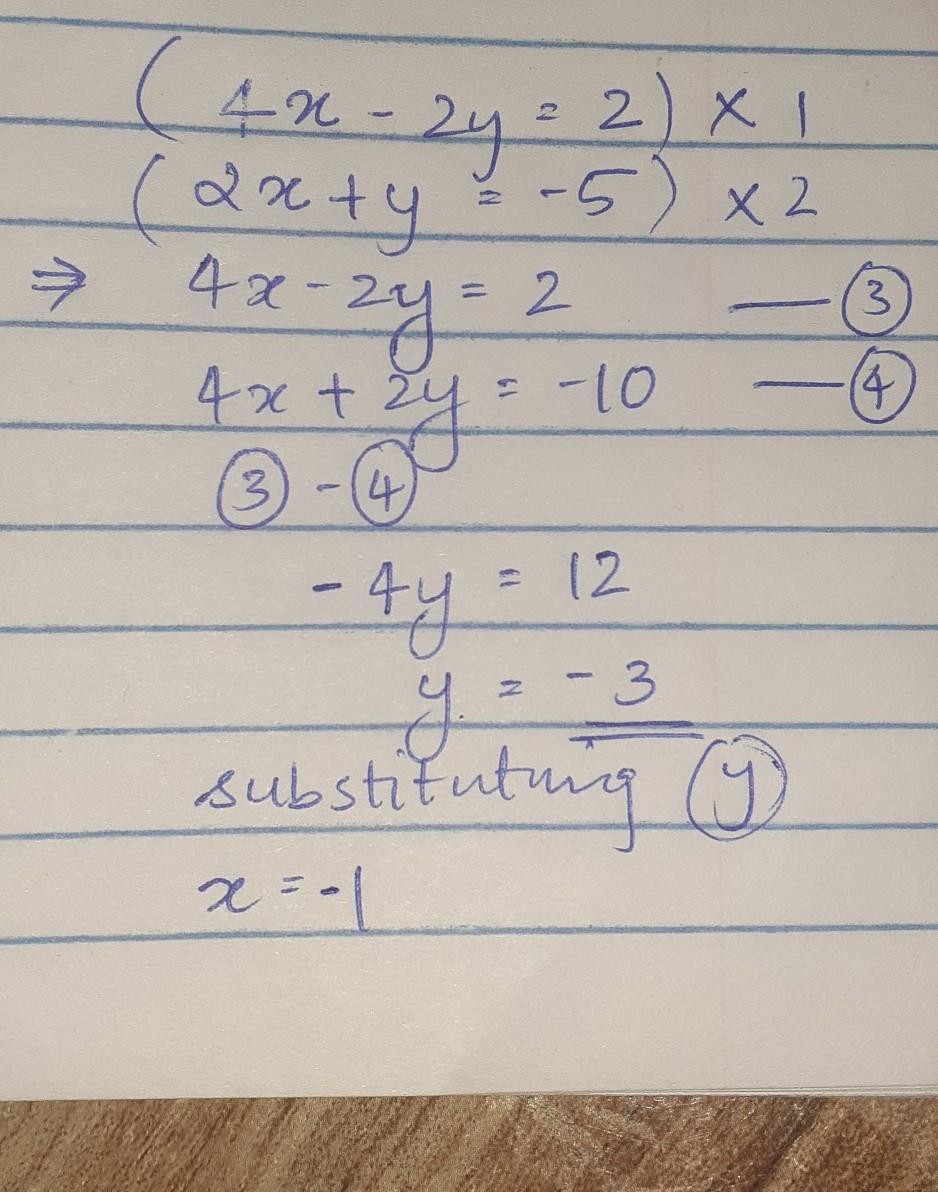 ( 4x - 2y = 2 ) × 1
( 2x + y = -5 ) × 2
⇒ 4x - 2y = 2 — ③
4x + 2y = -10 — ④
③ - ④
- 4y = 12
y = - 3
substituting ⓨ
x = -1